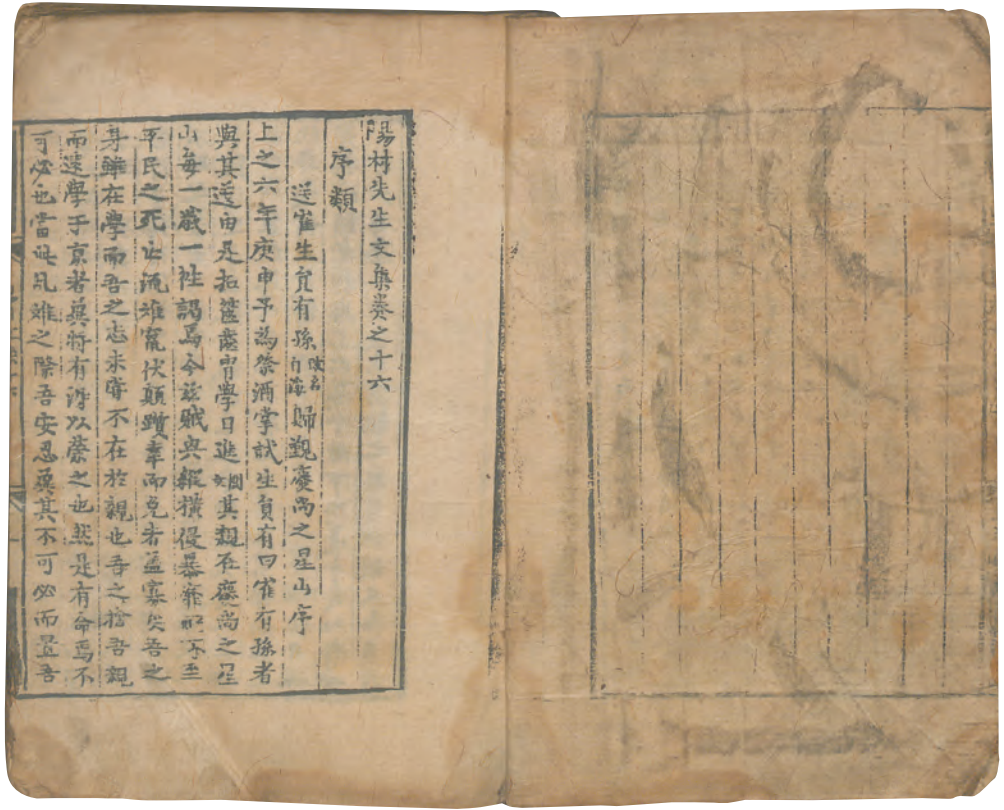 陽村先生文集卷之十六
序類
送崔生員有孫改名自海歸覲慶尚之星山序
上之六年庚申予爲祭酒掌試生員有曰崔有孫者
與其送由是摳篋處胄學日進炯其親在慶尚之星
山每一歲一徃謁焉今玆賊兵縱橫侵暴靡所不至
平民之死亡流離竄伏顚躓幸而免者盖寡矣吾之
身雖在學而吾之志未嘗不在於親也吾之捨吾親
而遠學于京者冀將有得以榮之也然是有命焉不
可必也當此乱離之際吾安忍冀其不可必而置吾